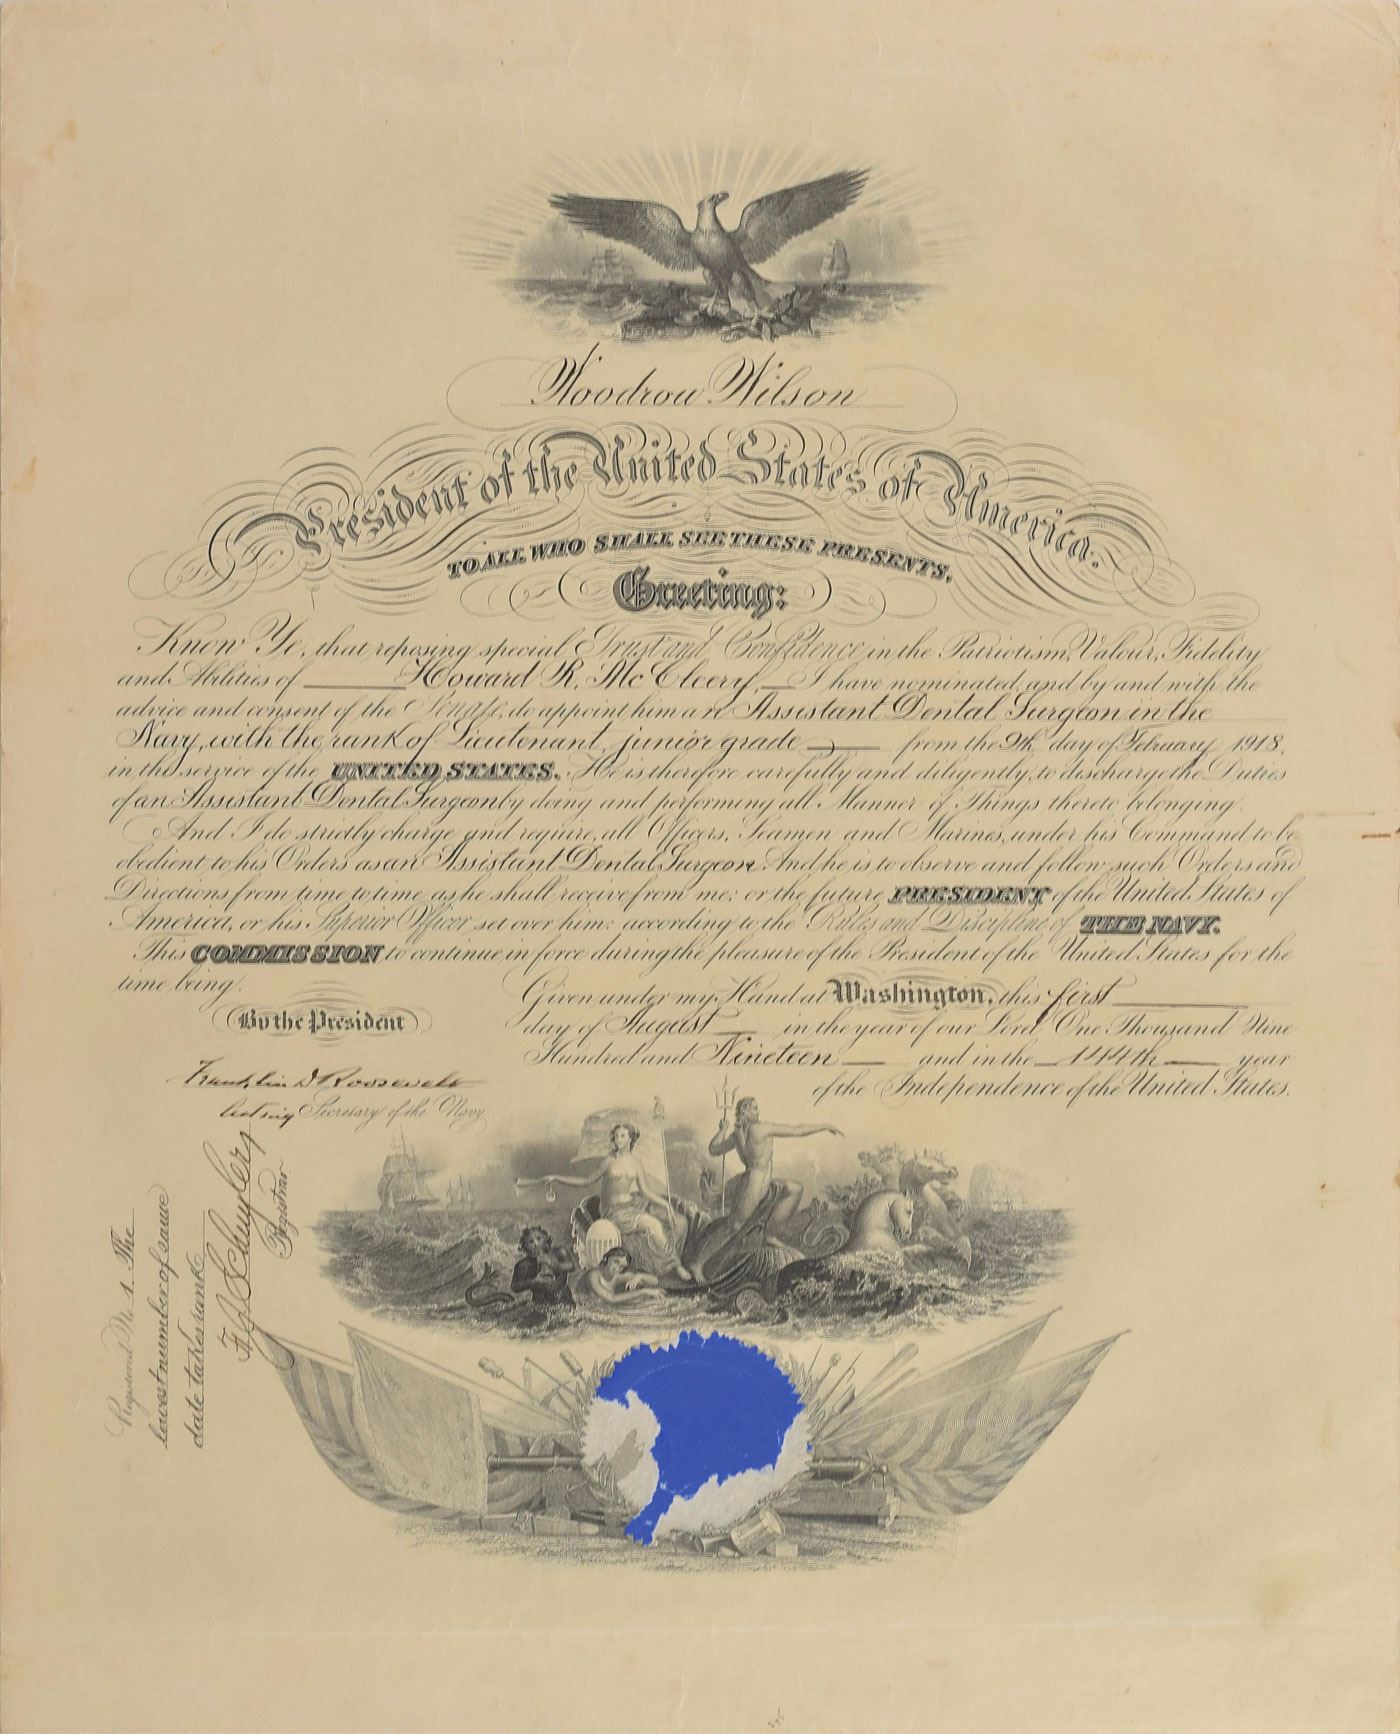 Woodrow Wilson
President of the United States of America.
TO ALL WHO SHALL SEE THESE PRESENTS,
Greeting:
Know Ye, that reposing special Trust and Confidence in the Patriotism, Valour, Fidelity
and Abilities of Howard R. McCleery, I have nominated, and by and with the
advice and consent of the Senate, do appoint him an Assistant Dental Surgeon in the
Navy, with the rank of Lieutenant, junior grade from the 9th day of February 1918,
in the service of the UNITED STATES. He is therefore carefully and diligently, to discharge the Duties
of an Assistant Dental Surgeon by doing and performing all Manner of Things thereto belonging.
And I do strictly charge and require, all Officers, Seamen and Marines, under his Command to be
obedient, to his Orders as an Assistant Dental Surgeon. And he is to observe and follow such Orders and
Directions from time to time as he shall receive from me: or the future PRESIDENT of the United States of
America, or his Superior Officer set over him: according to the Rules and Discipline of THE NAVY.
This COMMISSION to continue in force during the pleasure of the President of the United States for the
time being.
Given under my Hand at Washington, this first
day of August in the year of our Lord, One Thousand Nine
Hundred and Nineteen and in the 144th year
of the Independence of the United States.
By the President
Franklin D Roosevelt
Acting Secretary of the Navy
Registered N. 1. The
lowest number of same
date takes rank
Schuyler
Registrar